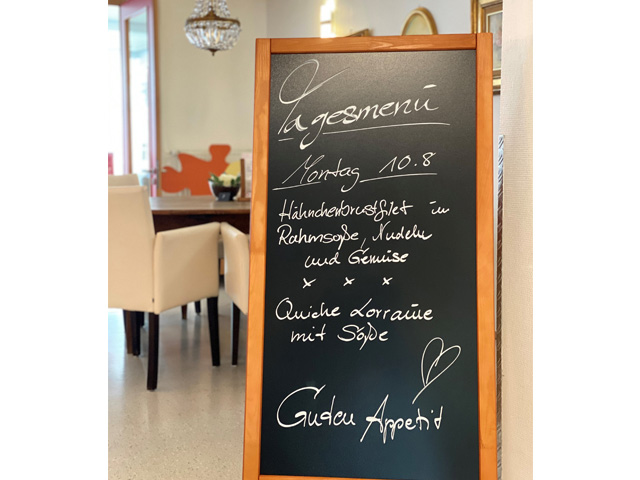 Tagesmenü
Montag 10.8
Hähnchenbrustfilet in
Rahmsoße, Nudeln
und Gemüse
x x x
Quiche Lorraine
mit Soße
Guten Appetit